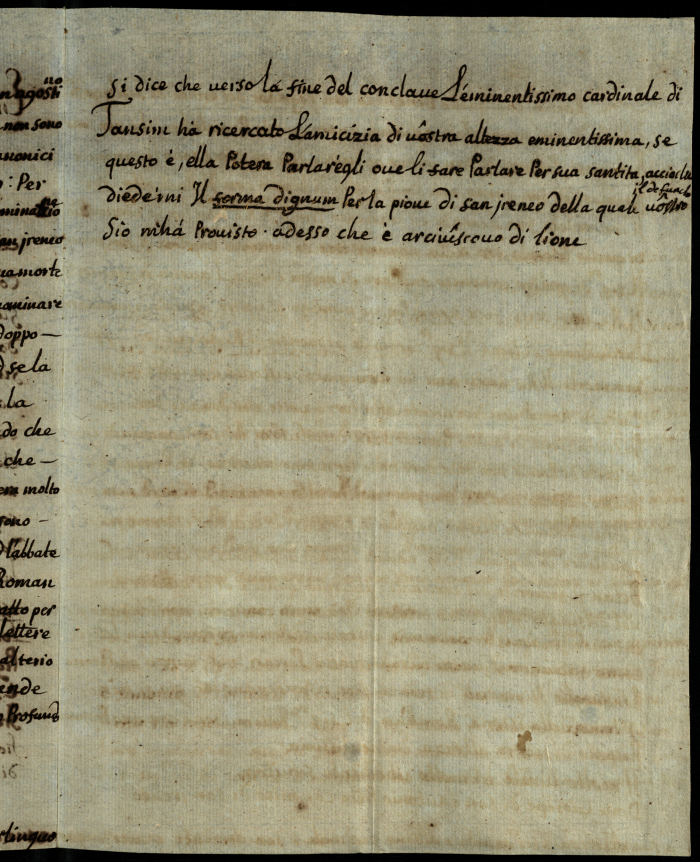 no
n agosti
non sono
anonici
: Per
an jreneo
ua morte
aminare
doppo —
se la
la
do che
che —
molto
sono -
l'abbate
Roman
atto per
lettere
alterio
ende
Profund
si dice che uerso la fine del conclaue L'eminentissimo cardinale di
Tansim há ricercato L'amicizia di uôstra altezza eminentissima, se
questo è, ella Potera Parlar'egli oue li fare Parlare Per sua santita,
diede'mi Il forma dignum Per la pioue di san jreneo della quale uôstro
Sio m'há Prouisto · adesso che è arciuêscouo di lione